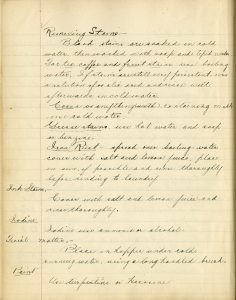 Removing Stains -
Blood stains are soaked in cold
water then washed with soap and tepid water
For tea, coffee and fruit stains use boiling
water. If stains are still very persistent use
a solution of oxalic acid and rinse well
afterwards in cold water.
Cocoa or anything with
use cold water.
Grease stains - use hot water and soap
or benzine
Iron Rust - spread over boiling water
cover with salt and lemon juice, place
in sun, if possible and rinse thoroughly
before sending to laundry
Ink Stains -
Cover with salt and lemon juice and
rinse thoroughly.
Iodine
Iodine use ammonia or alcohol.
Fecal matter -
Place in hopper under cold
running water, using a long handled brush.
Paint
Use turpentine or kerosene